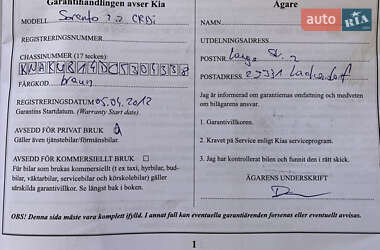 Garantihandlingen avser Kia
MODELL Sorento 2.2 CRDi
REGISTRERINGSNUMMER
CHASSINUMMER (17 tecken):
FÄRGKOD braun
REGISTRERINGSDATUM 05.04.2012
Garantins Startdatum. (Warranty Start date)
AVSEDD FÖR PRIVAT BRUK
Gäller även tjänstebilar/förmånsbilar.
AVSEDD FÖR KOMMERSIELLT BRUK □
För bilar som brukas kommersiellt (t ex taxi, hyrbilar, bud-
bilar, väktarbilar, servicebilar och körskolebilar) gäller
särskilda garantivillkor. Se längst bak i boken.
Ägare
NAMN
UTDELNINGSADRESS
POSTNR
POSTADRESS
Jag är informerad om garantiernas omfattning och medveten
om bilägarens ansvar.
1. Garantivillkoren.
2. Kravet på Service enligt Kias serviceprogram.
3. Jag har kontrollerat bilen och funnit den i rätt skick.
ÄGARENS UNDERSKRIFT
OBS! Denna sida måste vara komplett ifylld. I annat fall kan eventuella garantiärenden försenas eller eventuellt avvisas.
1
AUTO
RIA
.com